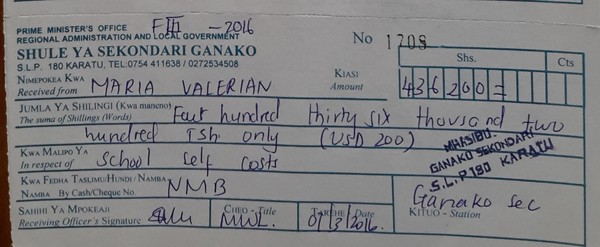 PRIME MINISTER'S OFFICE FIII - 2016
REGIONAL ADMINISTRATION AND LOCAL GOVERNMENT
SHULE YA SEKONDARI GANAKO
S.L.P. 180 KARATU, TEL:0754 411638 / 0272534508
No 1708
Shs. Cts
NIMEPOKEA KWA
Received from MARIA VALERIAN
KIASI
Amount 436200=
JUMLA YA SHILINGI (Kwa maneno)
The suma of Shillings (Words) Four hundred thirty six thousand two
hundred Tsh only (USD 200)
KWA MALIPO YA
In respect of School self costs
MHASIBU.
GANAKO SEKONDARI
S.L.P 180 KARATU
KWA FEDHA TASLIMU/HUNDI / NAMBA
NAMBA By Cash/Cheque No. NMB
Ganako sec
KITUO - Station
SAHIHI YA MPOKEAJI
Receiving Officer's Signature
CHEO - Title
MWL.
TAREHE / Date
01/3/2016.